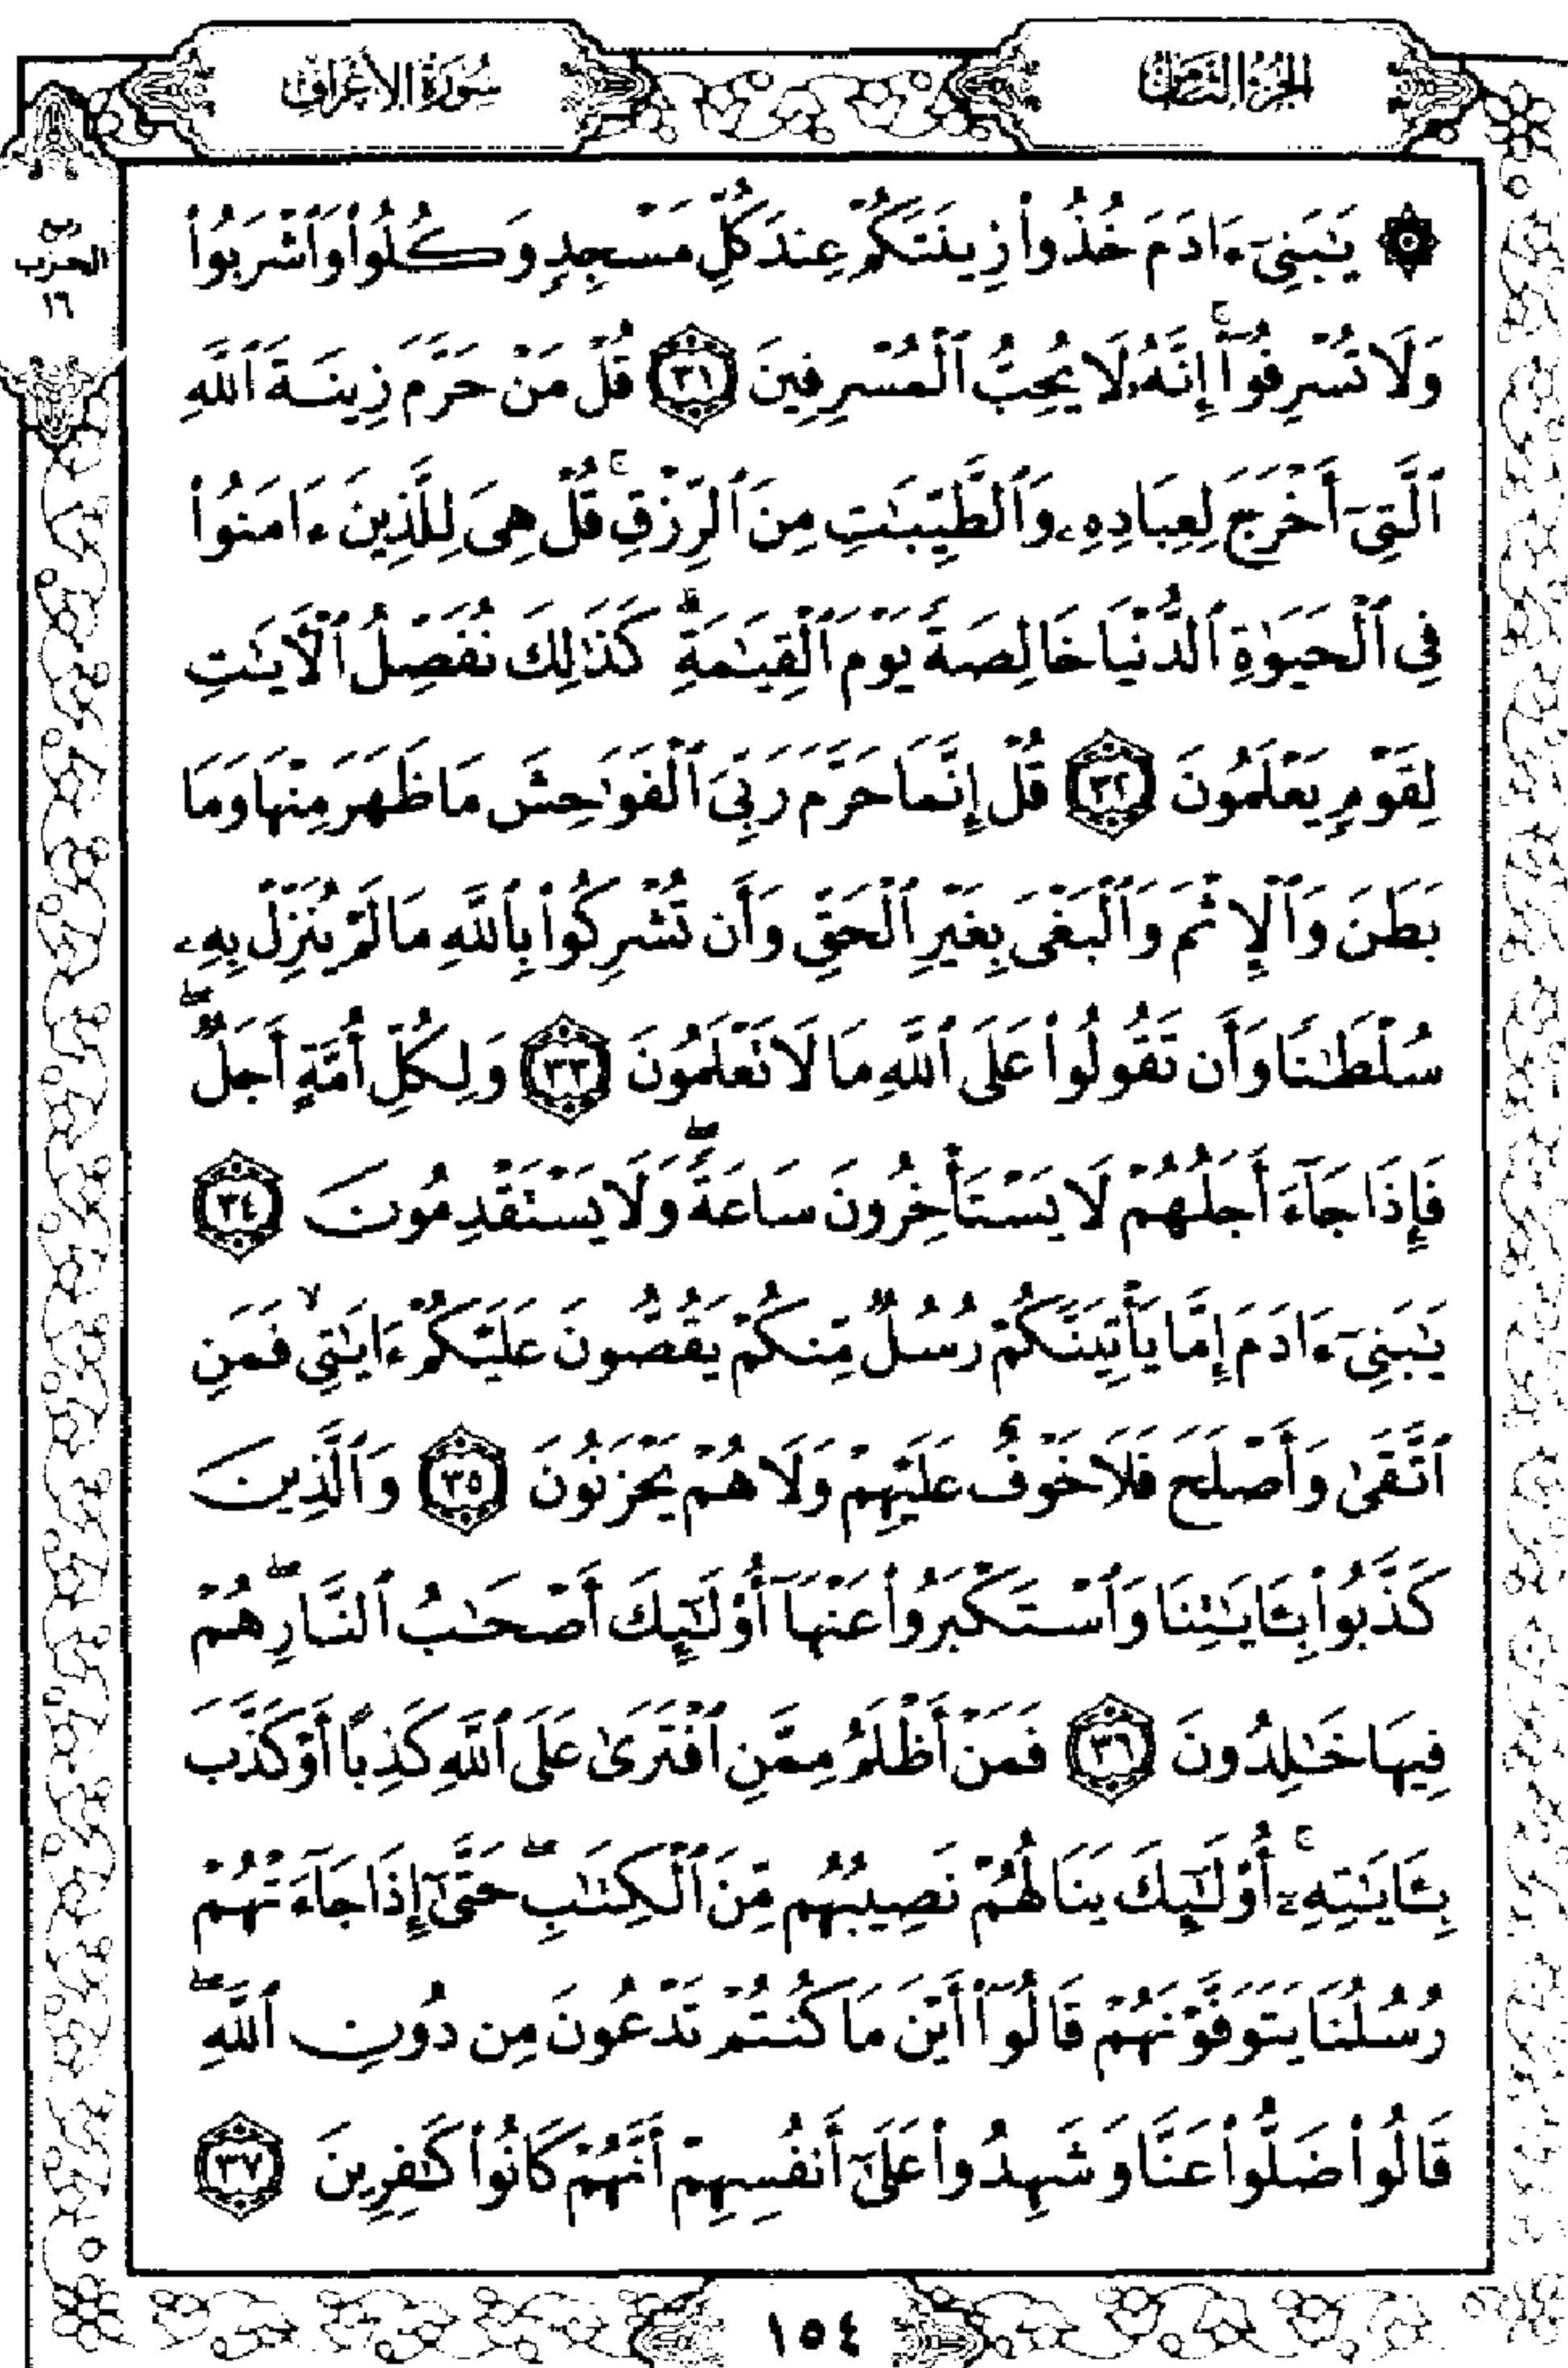 الجزء الثامن
سورة الأعراف
ربع
الحزب
١٦
۞ يَٰبَنِىٓ ءَادَمَ خُذُوا۟ زِينَتَكُمْ عِندَ كُلِّ مَسْجِدٍ وَكُلُوا۟ وَٱشْرَبُوا۟
وَلَا تُسْرِفُوٓا۟ ۚ إِنَّهُۥ لَا يُحِبُّ ٱلْمُسْرِفِينَ ٣١ قُلْ مَنْ حَرَّمَ زِينَةَ ٱللَّهِ
ٱلَّتِىٓ أَخْرَجَ لِعِبَادِهِۦ وَٱلطَّيِّبَٰتِ مِنَ ٱلرِّزْقِ ۚ قُلْ هِىَ لِلَّذِينَ ءَامَنُوا۟
فِى ٱلْحَيَوٰةِ ٱلدُّنْيَا خَالِصَةً يَوْمَ ٱلْقِيَٰمَةِ ۗ كَذَٰلِكَ نُفَصِّلُ ٱلْءَايَٰتِ
لِقَوْمٍ يَعْلَمُونَ ٣٢ قُلْ إِنَّمَا حَرَّمَ رَبِّىَ ٱلْفَوَٰحِشَ مَا ظَهَرَ مِنْهَا وَمَا
بَطَنَ وَٱلْإِثْمَ وَٱلْبَغْىَ بِغَيْرِ ٱلْحَقِّ وَأَن تُشْرِكُوا۟ بِٱللَّهِ مَا لَمْ يُنَزِّلْ بِهِۦ
سُلْطَٰنًا وَأَن تَقُولُوا۟ عَلَى ٱللَّهِ مَا لَا تَعْلَمُونَ ٣٣ وَلِكُلِّ أُمَّةٍ أَجَلٌ ۖ
فَإِذَا جَآءَ أَجَلُهُمْ لَا يَسْتَأْخِرُونَ سَاعَةً ۖ وَلَا يَسْتَقْدِمُونَ ٣٤
يَٰبَنِىٓ ءَادَمَ إِمَّا يَأْتِيَنَّكُمْ رُسُلٌ مِّنكُمْ يَقُصُّونَ عَلَيْكُمْ ءَايَٰتِى ۙ فَمَنِ
ٱتَّقَىٰ وَأَصْلَحَ فَلَا خَوْفٌ عَلَيْهِمْ وَلَا هُمْ يَحْزَنُونَ ٣٥ وَٱلَّذِينَ
كَذَّبُوا۟ بِـَٔايَٰتِنَا وَٱسْتَكْبَرُوا۟ عَنْهَآ أُو۟لَٰٓئِكَ أَصْحَٰبُ ٱلنَّارِ ۖ هُمْ
فِيهَا خَٰلِدُونَ ٣٦ فَمَنْ أَظْلَمُ مِمَّنِ ٱفْتَرَىٰ عَلَى ٱللَّهِ كَذِبًا أَوْ كَذَّبَ
بِـَٔايَٰتِهِۦٓ ۚ أُو۟لَٰٓئِكَ يَنَالُهُمْ نَصِيبُهُم مِّنَ ٱلْكِتَٰبِ ۖ حَتَّىٰٓ إِذَا جَآءَتْهُمْ
رُسُلُنَا يَتَوَفَّوْنَهُمْ قَالُوٓا۟ أَيْنَ مَا كُنتُمْ تَدْعُونَ مِن دُونِ ٱللَّهِ ۖ
قَالُوا۟ ضَلُّوا۟ عَنَّا وَشَهِدُوا۟ عَلَىٰٓ أَنفُسِهِمْ أَنَّهُمْ كَانُوا۟ كَٰفِرِينَ ٣٧
١٥٤